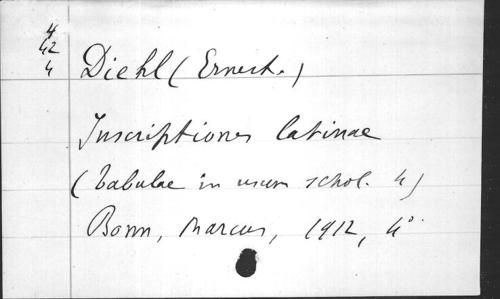 4
42
4
Diehl (Ernest.)
Inscriptiones latinae
(Tabulae in usum schol. 4)
Bonn, Marcus, 1912, 4°.